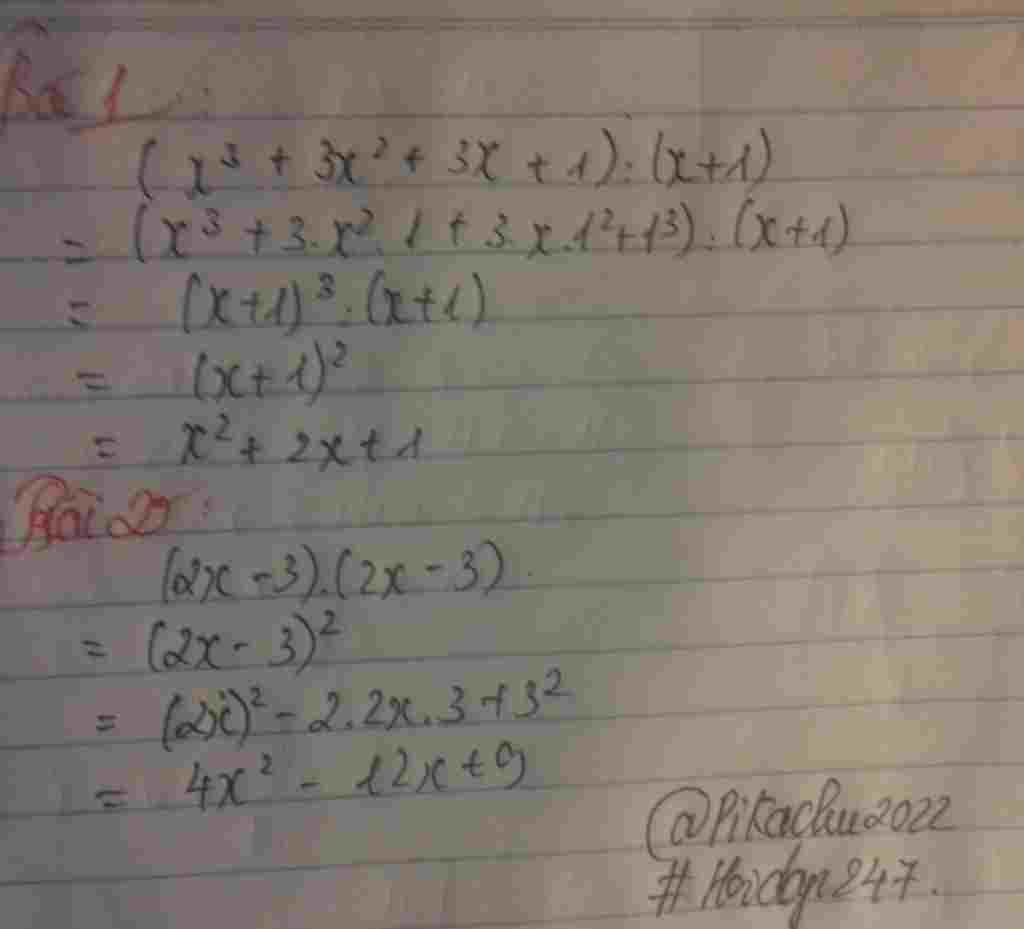 Bài 1:
(x³ + 3x² + 3x + 1) : (x+1)
= (x³ + 3.x².1 + 3.x.1²+1³) : (x+1)
= (x+1)³ : (x+1)
= (x+1)²
= x² + 2x + 1
Bài 2:
(2x - 3).(2x - 3)
= (2x - 3)²
= (2x)² - 2.2x.3 + 3²
= 4x² - 12x + 9
@Pikachu2022
#Hoidap247.